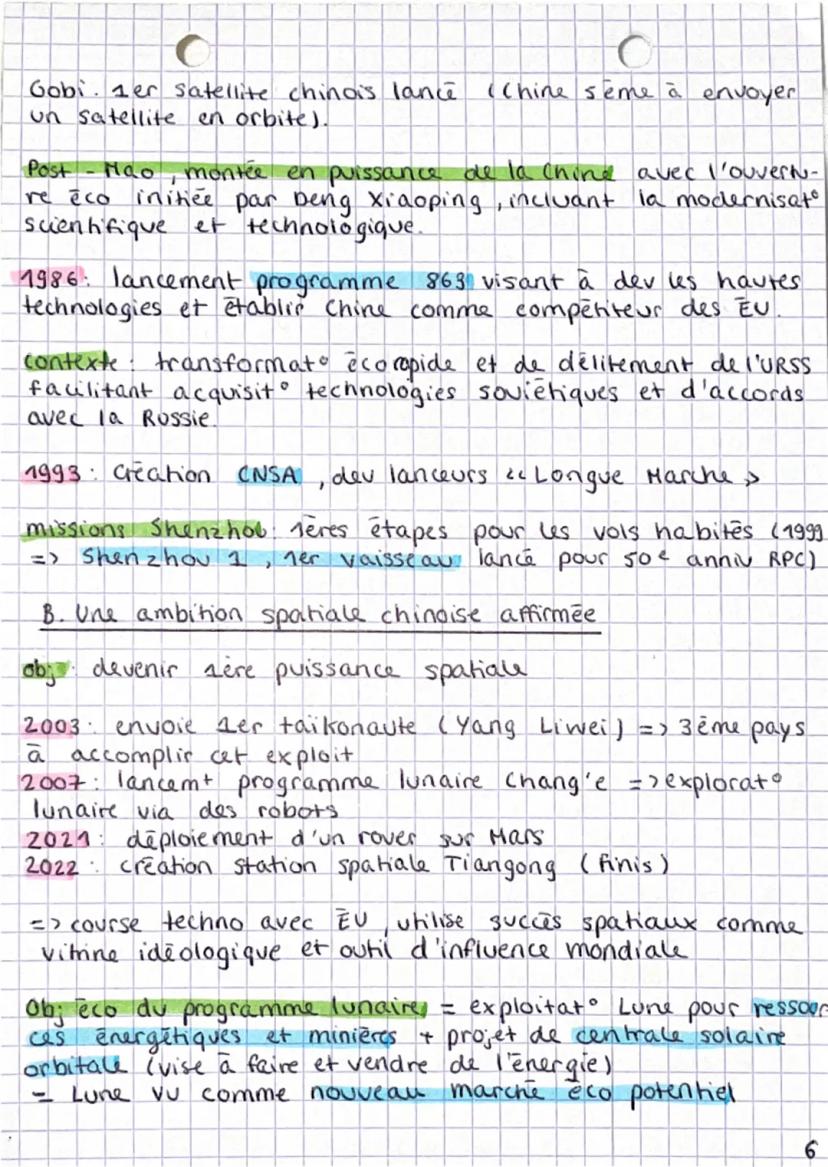 Gobi. 1er satellite chinois lancé (Chine 5ème à envoyer
un satellite en orbite).
Post-Mao, montée en puissance de la Chine avec l'ouvertu-
re éco initiée par Deng Xiaoping, incluant la modernisat°
scientifique et technologique.
1986: lancement programme 863 visant à dev les hautes
technologies et établir Chine comme compétiteur des ÉU.
contexte: transformat° éco rapide et de délitement de l'URSS
facilitant acquisit° technologies soviétiques et d'accords
avec la Russie.
1993: Création CNSA, dev lanceurs << Longue Marche >
missions Shenzhou: 1ères étapes pour les vols habités (1999
=> Shenzhou 1, 1er vaisseau lancé pour 50e anniv RPC)
B. Une ambition spatiale chinoise affirmée
obj: devenir 1ère puissance spatiale
2003: envoie 1er taïkonaute (Yang Liwei) => 3ème pays
à accomplir cet exploit
2007: lancemt programme lunaire Chang'e => explorat°
lunaire via des robots
2021: déploiement d'un rover sur Mars
2022: création station spatiale Tiangong (finis)
=> course techno avec ÉU, utilise succès spatiaux comme
vitrine idéologique et outil d'influence mondiale
Obj éco du programme lunaire = exploitat° Lune pour ressour
ces énergétiques et minières + projet de centrale solaire
orbitale (vise à faire et vendre de l'énergie)
= Lune vu comme nouveau marché éco potentiel
6